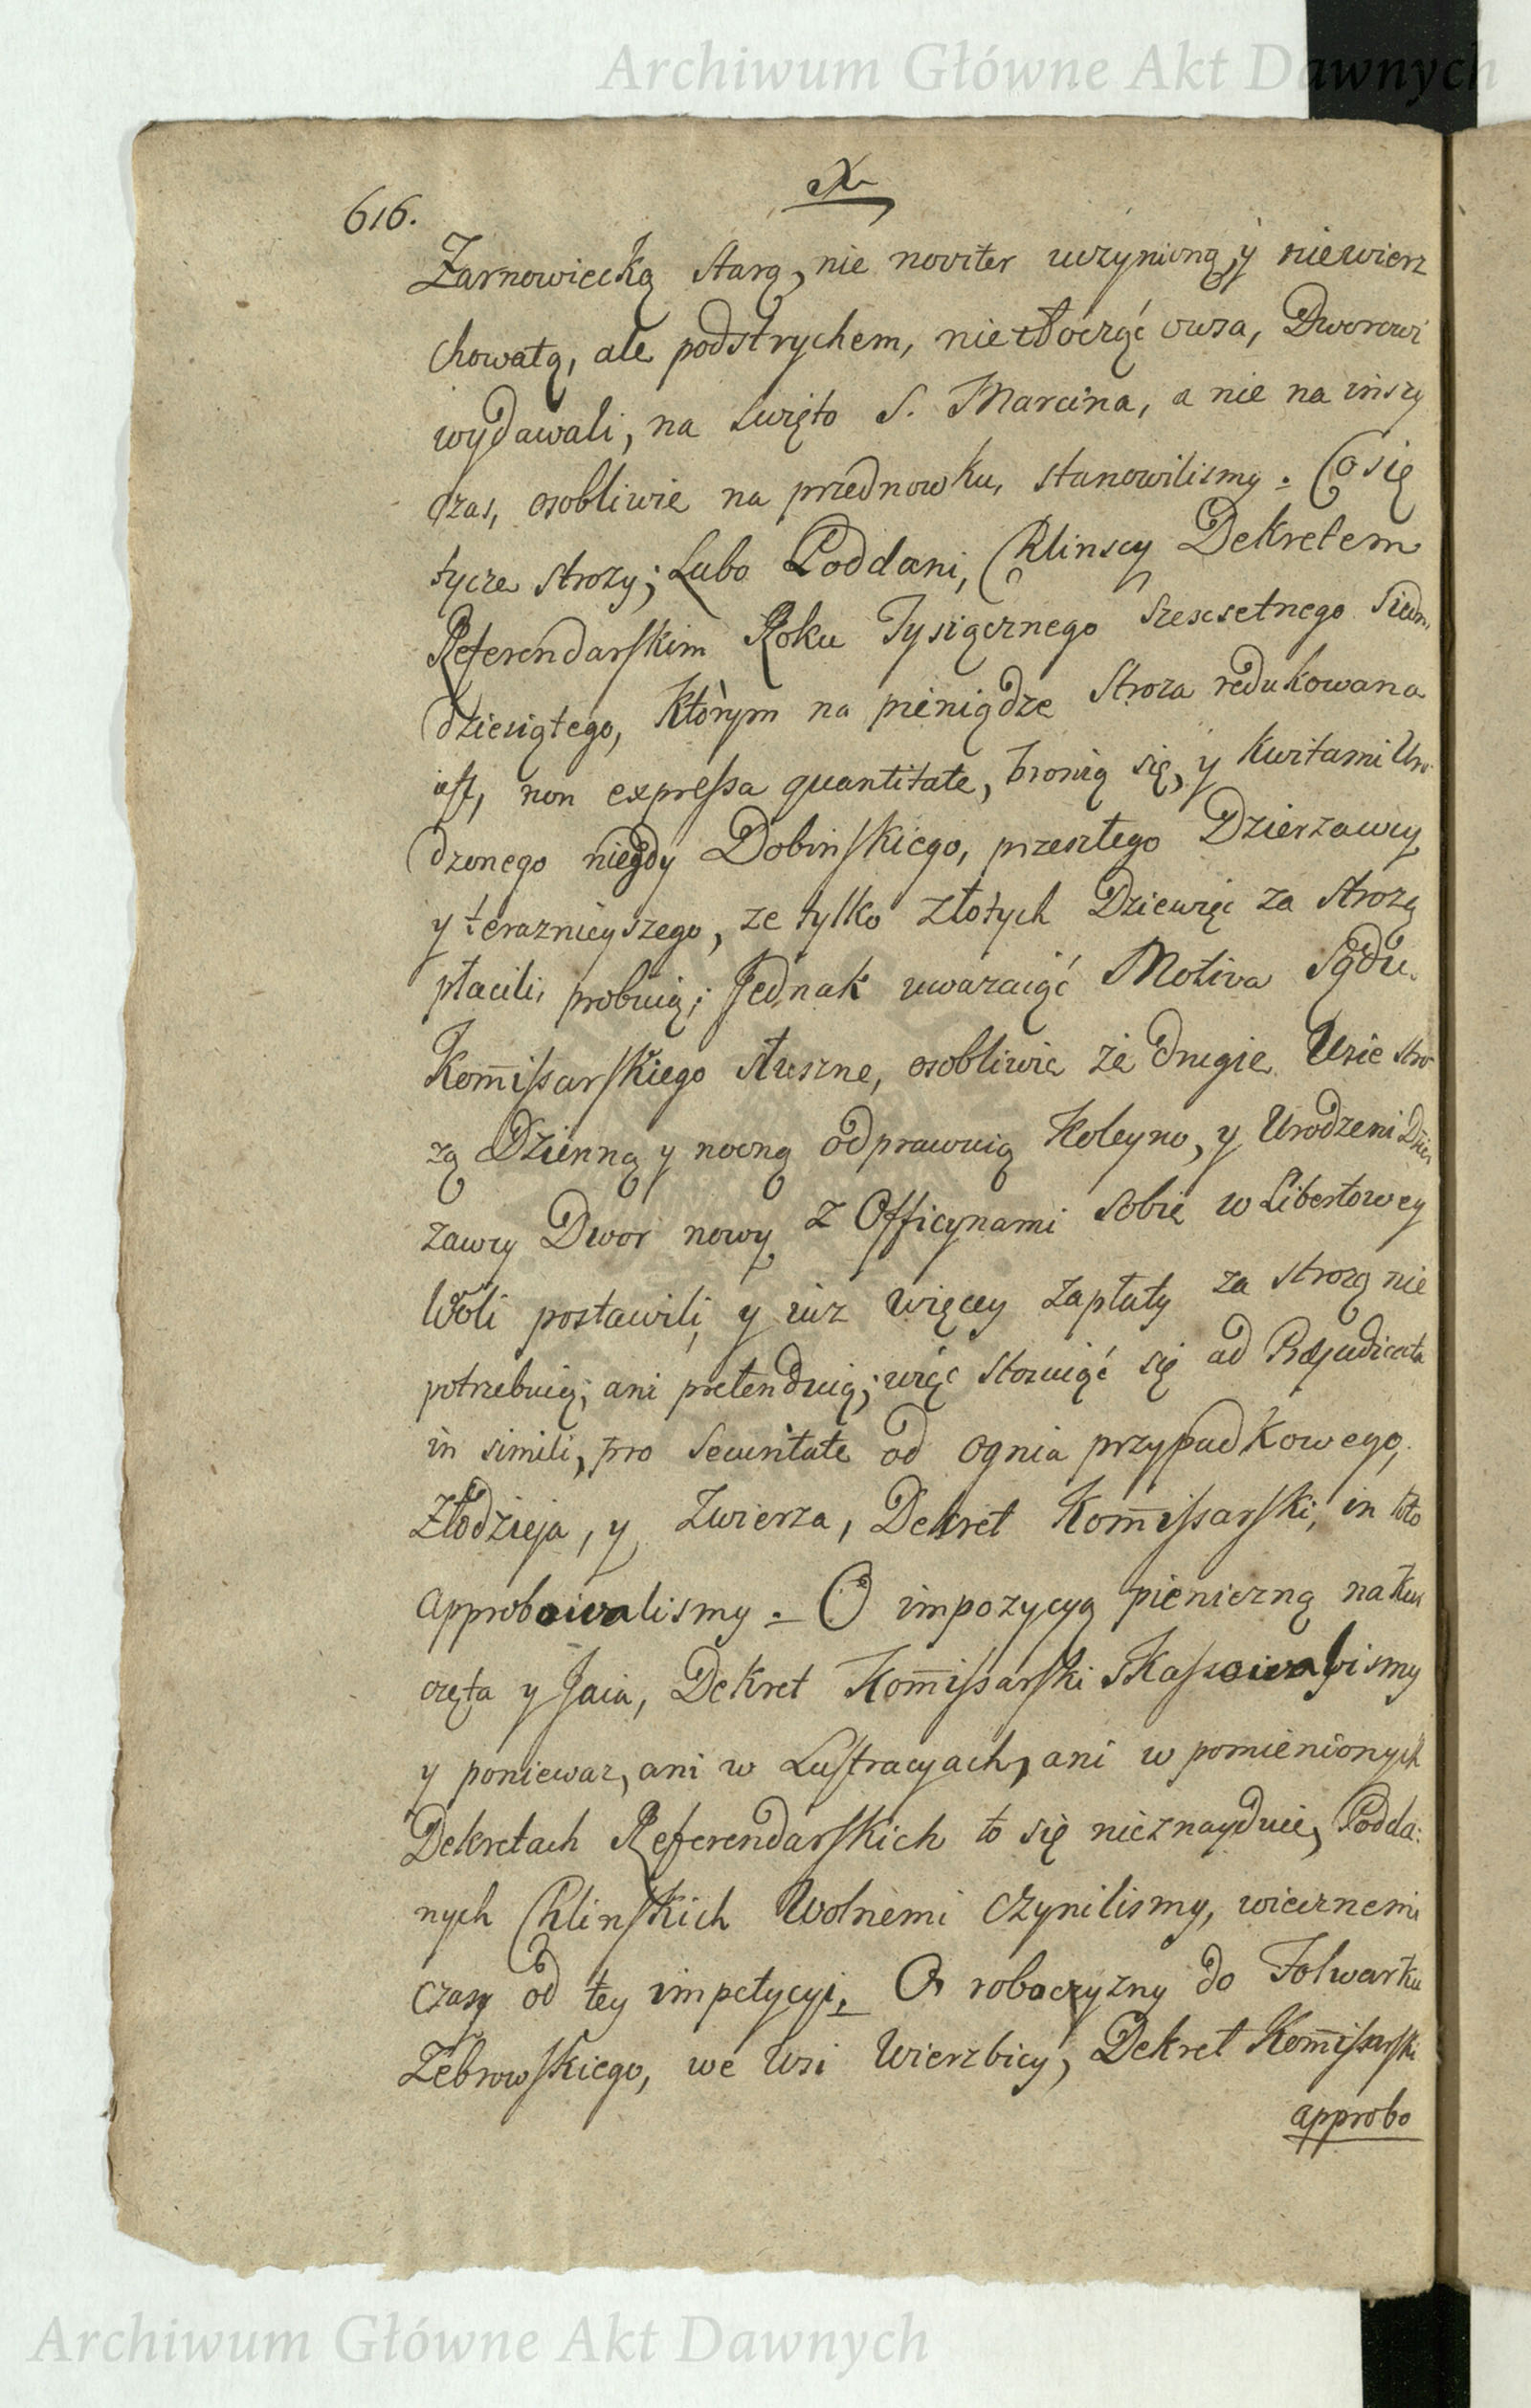 Archiwum Główne Akt Dawnych
616.
Zarnowiecką starą, nie noviter uczynioną, y niewierz
chowatą, ale podstrychem, nietłocząć owsa, Dworowi
wydawali, na swięto S. Marcina, a nie na inszy
czas, osobliwie na przednowku, stanowilismy. Co się
tycze strozy; Lubo Poddani, Chlinscy Dekretem
Referendarskim Roku Tysiącznego Szescsetnego Siedm
dziesiątego, Którym na pieniądze Stroza redukowana
iest, non expressa quantitate, bronią się, y Kwitami Uro
dzonego niegdy Dobinskiego, przeszłego Dzierzawcy
y terazniejszego, ze tylko złotych Dziewięc za strozą
płacili, probuią; Jednak uwazaiąć Motiva Sądu
Kommissarskiego słuszne, osobliwie że drugie Wsie stro
zą Dzienną y nocną odprawuią Koleyno, y Urodzeni Dzier
zawcy Dwor nowy z Officynami sobie w Libertowey
Woli postawili, y iuz więcey zapłaty za strozą nie
potrzebuią, ani pretenduią; więc stosuiąć się ad Præjudicata
in simili, pro securitate od ognia przypadkowego,
Złodzieja, y Zwierza, Dekret Kommissarski, in toto
approbowalismy. O impozycyą pieniezną na Kur
częta y Jaia, Dekret Kommissarski Skassowalismy
y poniewaz, ani w Lustracyach, ani w pomienionych
Dekretach Referendarskich to się nieznayduie, Podda:
nych Chlinskich Wolnemi czynilismy, wiecznemi
czasy od tey impetycyi. O robocizny do Folwarku
Zebrowskiego, we Wsi Wierzbicy, Dekret Kommissarski
approbo
Archiwum Główne Akt Dawnych